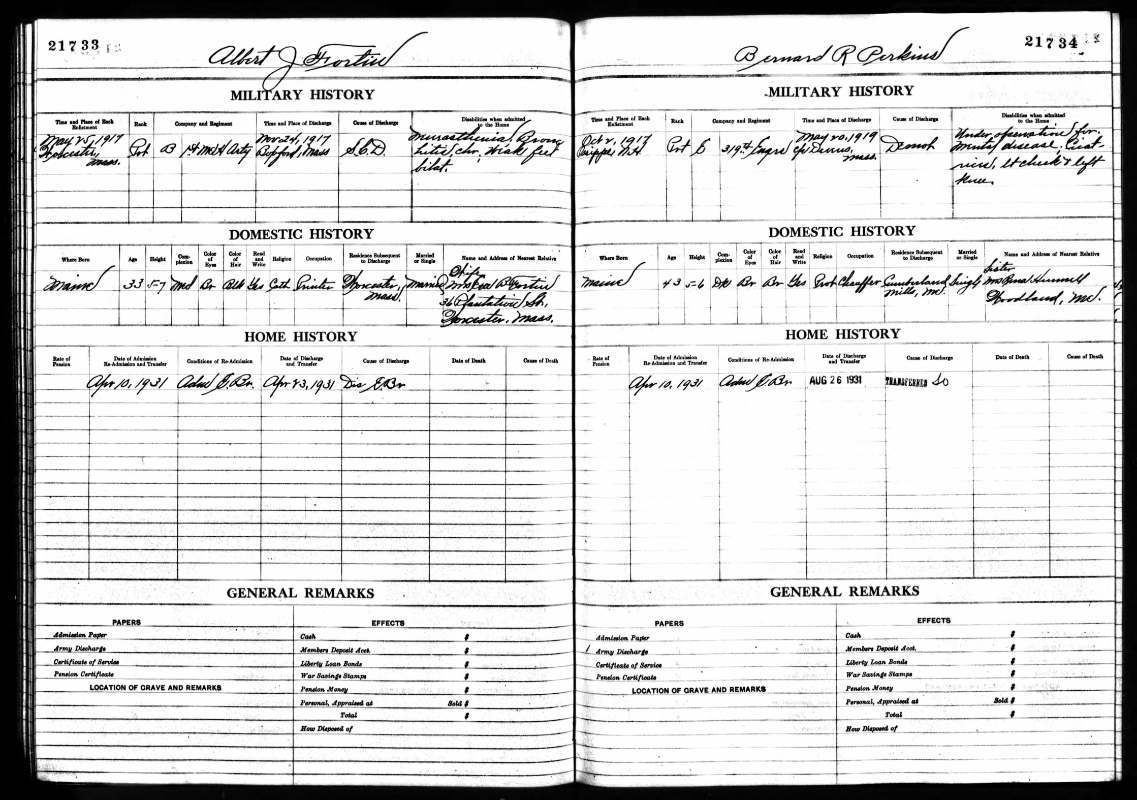 21733
Albert J Fortin
MILITARY HISTORY
Time and Place of Each Enlistment
Rank
Company and Regiment
Time and Place of Discharge
Cause of Discharge
Disabilities when admitted to the Home
May 25, 1917
Worcester, Mass.
Pvt
B 1st
Arty
Nov 24, 1917
Boxford, Mass
S.C.D.
chr, weak feet
bilat.
DOMESTIC HISTORY
Where Born
Age
Height
Complexion
Color of Eyes
Color of Hair
Read and Write
Religion
Occupation
Residence Subsequent to Discharge
Married or Single
Name and Address of Nearest Relative
Maine
33
5-7
Med
Br
Blk
Yes
Cath
Printer
Worcester, Mass.
Married
Wife
Mrs B Fortin
36 Plantation St,
Worcester, Mass.
HOME HISTORY
Rate of Pension
Date of Admission Re-Admission and Transfer
Conditions of Re-Admission
Date of Discharge and Transfer
Cause of Discharge
Date of Death
Cause of Death
Apr 10, 1931
Adm E. Br.
Apr 23, 1931
Dis E. Br
GENERAL REMARKS
PAPERS
Admission Paper
Army Discharge
Certificate of Service
Pension Certificate
LOCATION OF GRAVE AND REMARKS
EFFECTS
Cash $
Members Deposit Acct. $
Liberty Loan Bonds $
War Savings Stamps $
Pension Money $
Personal, Appraised at Sold $
Total $
How Disposed of
21734
Bernard R Perkins
MILITARY HISTORY
Time and Place of Each Enlistment
Rank
Company and Regiment
Time and Place of Discharge
Cause of Discharge
Disabilities when admitted to the Home
Oct 2, 1917
NH
Pvt
319th Engrs
May 20, 1919
Cp Devens, Mass.
Demob
Under observation for
mental disease,
cheek & left
knee
DOMESTIC HISTORY
Where Born
Age
Height
Complexion
Color of Eyes
Color of Hair
Read and Write
Religion
Occupation
Residence Subsequent to Discharge
Married or Single
Name and Address of Nearest Relative
Maine
43
5-6
Dk
Br
Br
Yes
Prot
Chauffer
Cumberland Mills, Me.
Single
Sister
Mrs
Woodland, Me.
HOME HISTORY
Rate of Pension
Date of Admission Re-Admission and Transfer
Conditions of Re-Admission
Date of Discharge and Transfer
Cause of Discharge
Date of Death
Cause of Death
Apr 10, 1931
Adm E. Br.
AUG 26 1931
TRANSFERRED SO
GENERAL REMARKS
PAPERS
Admission Paper
Army Discharge
Certificate of Service
Pension Certificate
LOCATION OF GRAVE AND REMARKS
EFFECTS
Cash $
Members Deposit Acct. $
Liberty Loan Bonds $
War Savings Stamps $
Pension Money $
Personal, Appraised at Sold $
Total $
How Disposed of